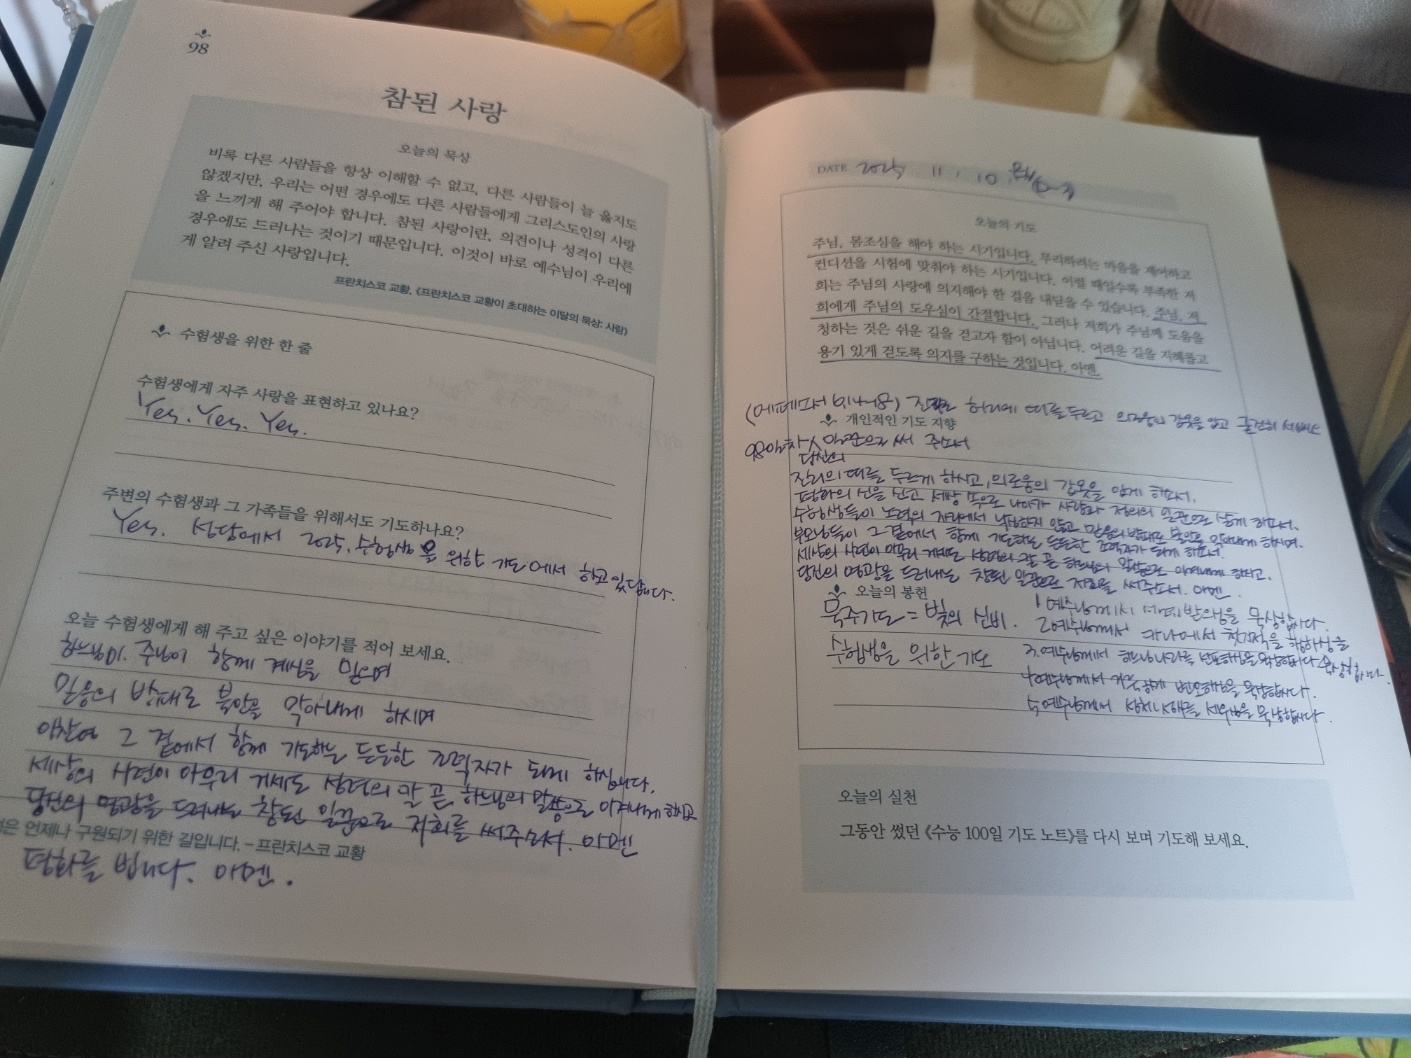 98
참된 사랑
오늘의 묵상
비록 다른 사람들을 항상 이해할 수 없고, 다른 사람들이 늘 옳지도
않겠지만, 우리는 어떤 경우에도 다른 사람들에게 그리스도인의 사랑
을 느끼게 해 주어야 합니다. 참된 사랑이란, 의견이나 성격이 다른
경우에도 드러나는 것이기 때문입니다. 이것이 바로 예수님이 우리에
게 알려 주신 사랑입니다.
프란치스코 교황, 《프란치스코 교황이 초대하는 이달의 묵상: 사랑》
수험생을 위한 한 줄
수험생에게 자주 사랑을 표현하고 있나요?
Yes. Yes. Yes.
주변의 수험생과 그 가족들을 위해서도 기도하나요?
Yes. 성당에서 2025. 수험생을 위한 기도에서 하고 있답니다.
오늘 수험생에게 해 주고 싶은 이야기를 적어 보세요.
하느님이. 주님이 함께 계심을 믿으며
믿음의 방패로 불안을 막아내게 하시며
그 곁에서 함께 기도하는 든든한 조력자가 되게 하십니다.
세상의 시련이 아무리 거세도 성령의 말 곧 하느님의 말씀으로 이겨내게 하시고
당신의 영광을 드러내는 참된 일꾼으로 저희를 써주소서. 아멘
은 언제나 구원되기 위한 길입니다. – 프란치스코 교황
평화를 빕니다. 아멘.
DATE 2025 11. 10.
오늘의 기도
주님, 몸조심을 해야 하는 시기입니다. 무리하려는 마음을 제어하고
컨디션을 시험에 맞춰야 하는 시기입니다. 이럴 때일수록 부족한 저
희는 주님의 사랑에 의지해야 한 길을 내딛을 수 있습니다. 주님, 저
희에게 주님의 도우심이 간절합니다. 그러나 저희가 주님께 도움을
청하는 것은 쉬운 길을 걷고자 함이 아닙니다. 어려운 길을 지혜롭고
용기 있게 걷도록 의지를 구하는 것입니다. 아멘.
(에페소서 6,14) 진리로 허리에 띠를 두르고 의로움의 갑옷을 입고 굳건히 서십시오
개인적인 기도 지향
98일차 일꾼으로 써 주소서
당신의
진리의 띠를 두르게 하시고, 의로움의 갑옷을 입게 하소서.
평화의 신을 신고 세상 속으로 나아가 사랑과 진리의 일꾼으로 살게 하소서.
수험생들이 노력의 자리에서 낙심하지 않고 믿음의 방패로 불안을 막아내게 하시며.
부모님들이 그 곁에서 함께 기도하는 든든한 조력자가 되게 하소서.
세상의 시련이 아무리 거세도 성령의 칼 곧 하느님의 말씀으로 이겨내게 하시고.
당신의 영광을 드러내는 참된 일꾼으로 저희를 써주소서. 아멘.
오늘의 봉헌
묵주기도 = 빛의 신비.
1 예수님께서 세례받으심을 묵상합시다.
2 예수님께서 카나에서 첫기적을 행하심을
묵상합시다.
수험생을 위한 기도
3. 예수님께서 하느님나라를 선포하심을 묵상합시다
4 예수님께서 거룩하게 변모하심을 묵상합시다.
5 예수님께서 성체성사를 세우심을 묵상합시다.
오늘의 실천
그동안 썼던 《수능 100일 기도 노트》를 다시 보며 기도해 보세요.